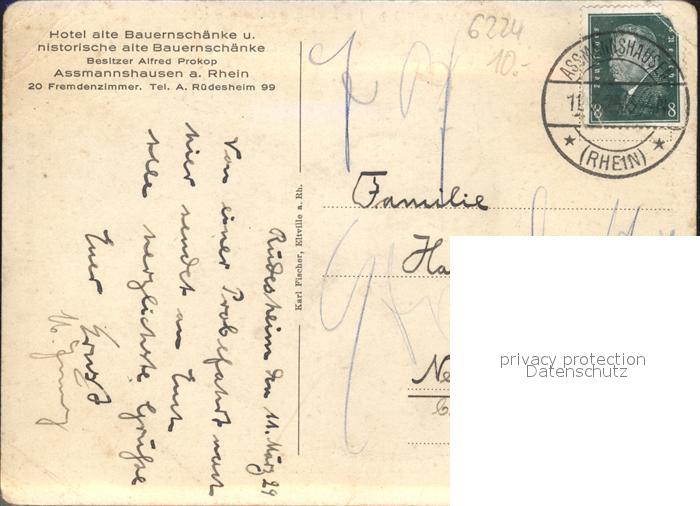 Hotel alte Bauernschänke u.
historische alte Bauernschänke
Besitzer Alfred Prokop
Assmannshausen a. Rhein
20 Fremdenzimmer. Tel. A. Rüdesheim 99
6224
10.-
8 8
ASSMANNSHAUSEN
(RHEIN)
Karl Fischer, Eltville a. Rh.
Familie
Ha
Ne
Rüdesheim den 11. März 29
Von einer Probefahrt nach
hier sendet an Euch
alle herzlichste Grüsse
Euer Ernst
privacy protection
Datenschutz